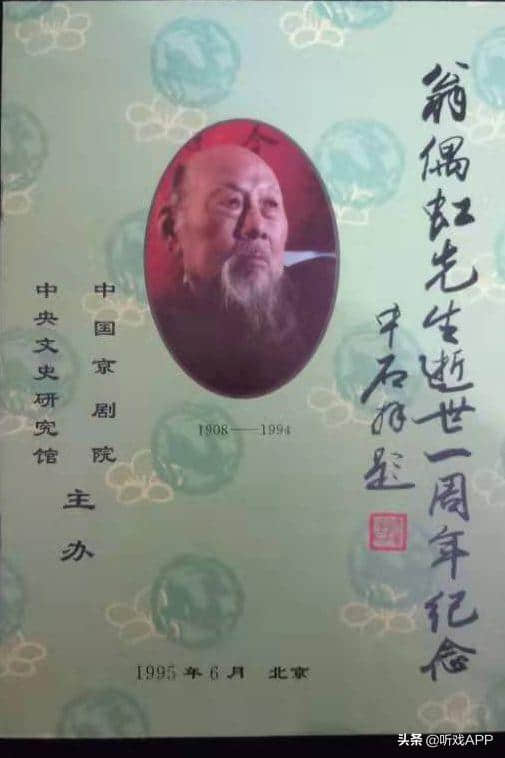 翁偶虹先生逝世一周年纪念
中石拜题
1908——1994
中国京剧院
中央文史研究馆
主办
1995年6月 北京
头条 @听戏APP